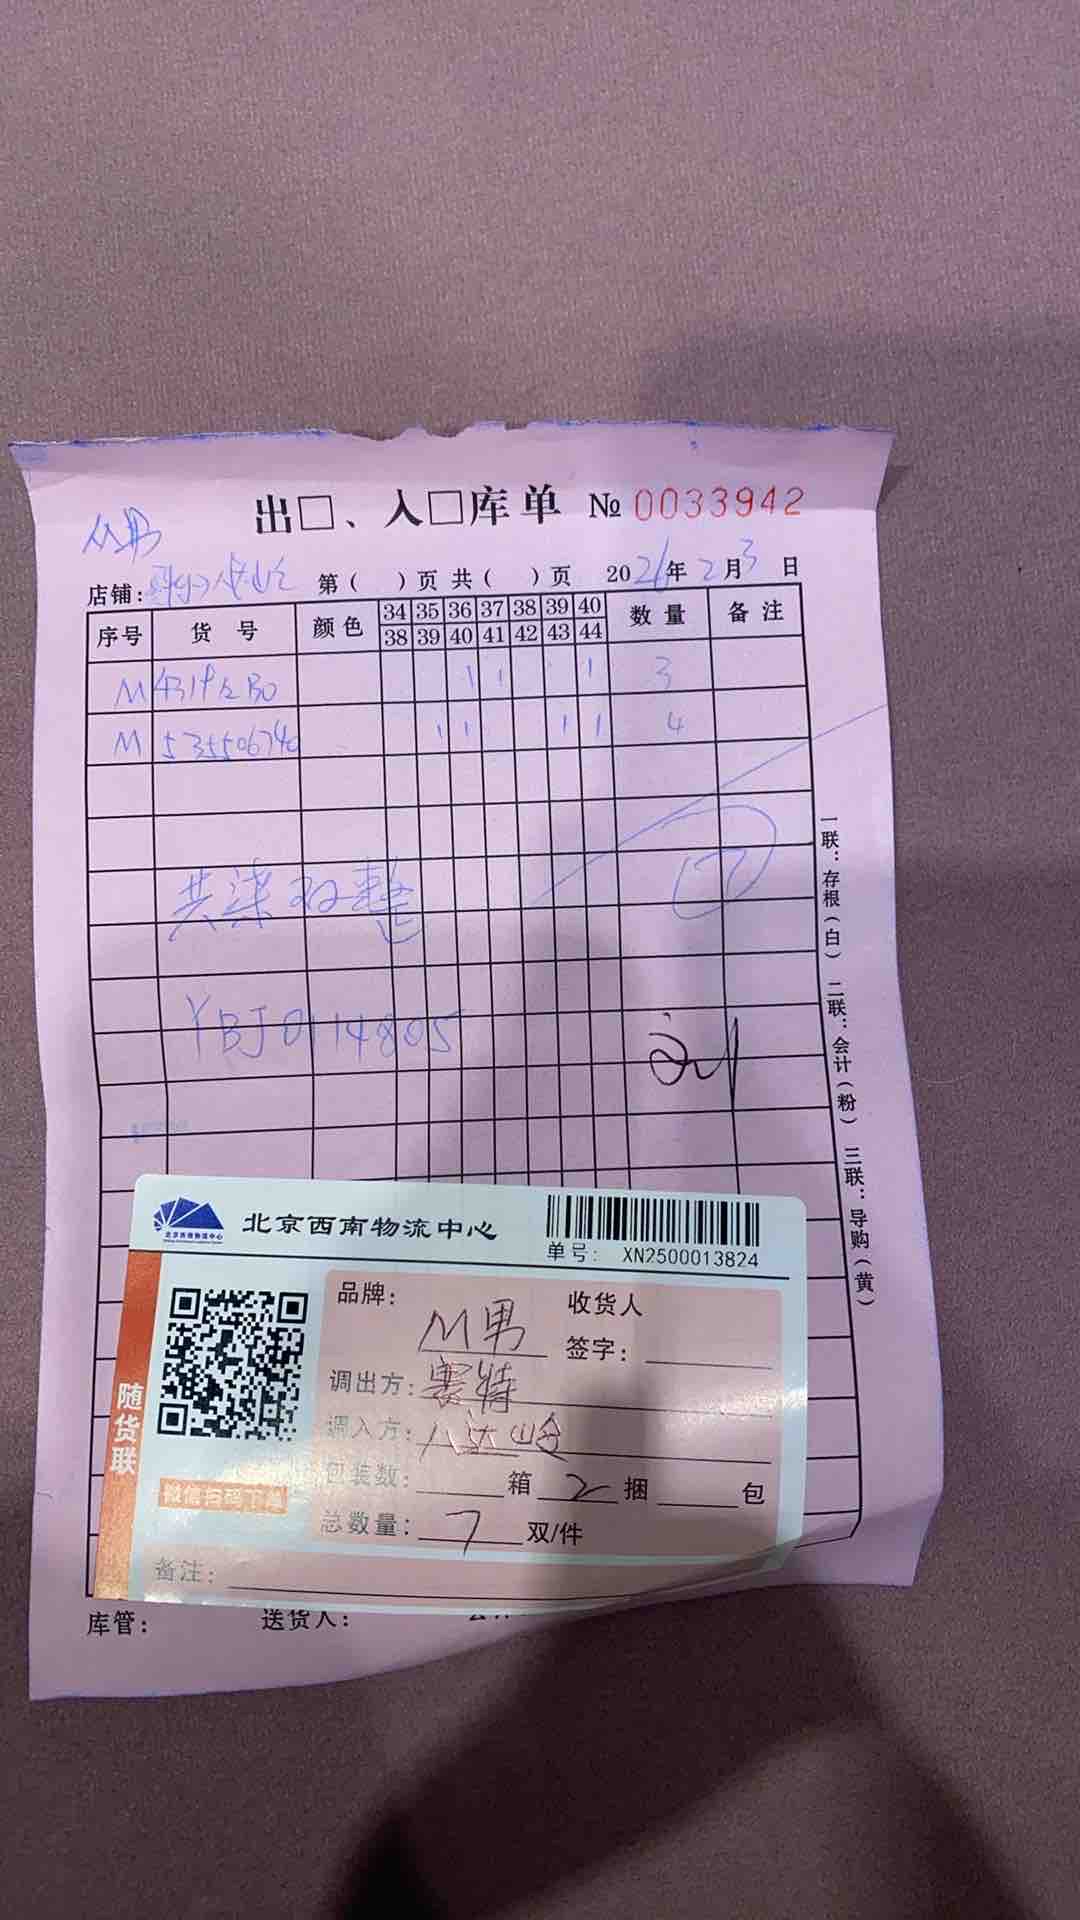 出□、入□库单 № 0033942
M男
店铺: 第( )页 共( )页 2026年2月3日
序号 货号 颜色 34 35 36 37 38 39 40 数量 备注
38 39 40 41 42 43 44
M 1 1 1 3
M 535506740 1 1 1 1 4
⑦
共柒双整
YBJ0114805
刘
一联:存根(白) 二联:会计(粉) 三联:导购(黄)
北京西南物流中心
北京西南物流中心
单号: XN2500013824
随货联
微信扫码下单
品牌: M男 收货人
签字:
调出方: 赛特
调入方: 八达岭
包装数: 箱 2 捆 包
总数量: 7 双/件
备注:
库管: 送货人: